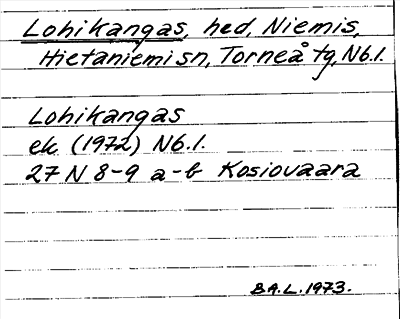 Lohikangas, hed, Niemis,
Hietaniemi sn, Torneå tg, Nb.l.
Lohikangas
ek (1972) Nb.l.
27 N 8-9 a-b Kosiovaara
B.A.L. 1973.